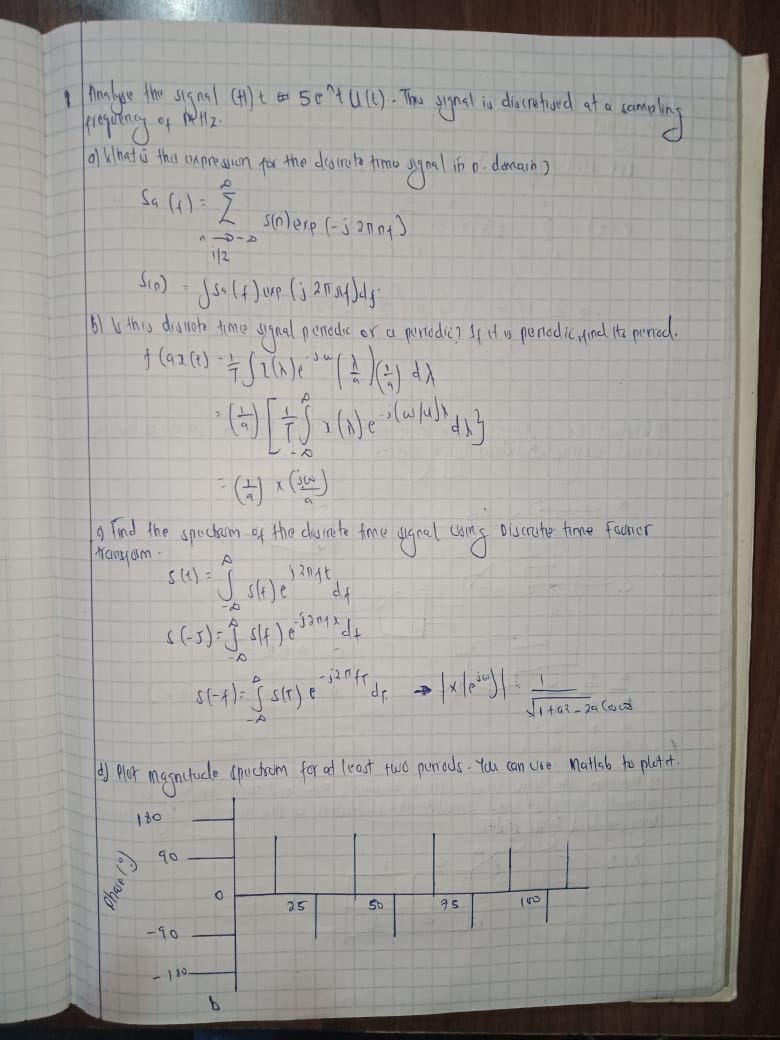 Analyse the signal (t) t = 5e^t U(t). This signal is discretised at a sampling
frequency of Hz.
a) What is the expression for the discrete time signal in n-domain?
Sa (f) = ∞ Σ n → -∞ s(n) exp (-j 2πnf)
1/2
s(n) = ∫ sa (f) exp (j 2π nf) df
b) Is this discrete time signal periodic or a periodic? If it is periodic, find its period.
f (ax(t) = 1/T ∫ x(λ) e^-jω (λ/a) (1/a) dλ
= (1/a) [ 1/T ∫ ∞ -∞ x(λ) e^-j(ω/a)λ dλ }
= (1/a) x (jω/a)
c) Find the spectrum of the discrete time signal using Discrete time Fourier
transform.
s(t) = ∫ ∞ -∞ s(f) e^j2πft df
s(-f) = ∫ ∞ -∞ s(f) e^-j2πfx df
s(-f) = ∫ ∞ -∞ s(τ) e^-j2πfτ dτ → |x(e^jω)| = 1/√1+a2-2a Cosω
d) Plot magnitude spectrum for at least two periods. You can use Matlab to plot it.
180
90
Phase (°)
0
25 50 75 100
-90
-180
b